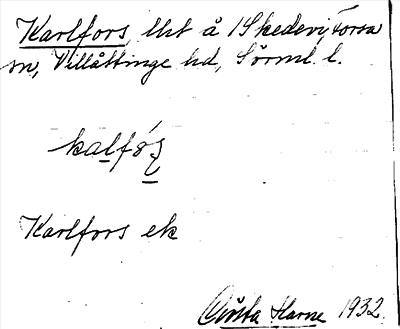 Karlfors, lht å 1 Skedevi, Forsa
sn, Villåttinge hd, Sörml. l.
kalfóʂ
Karlfors ek
Harne 1932.